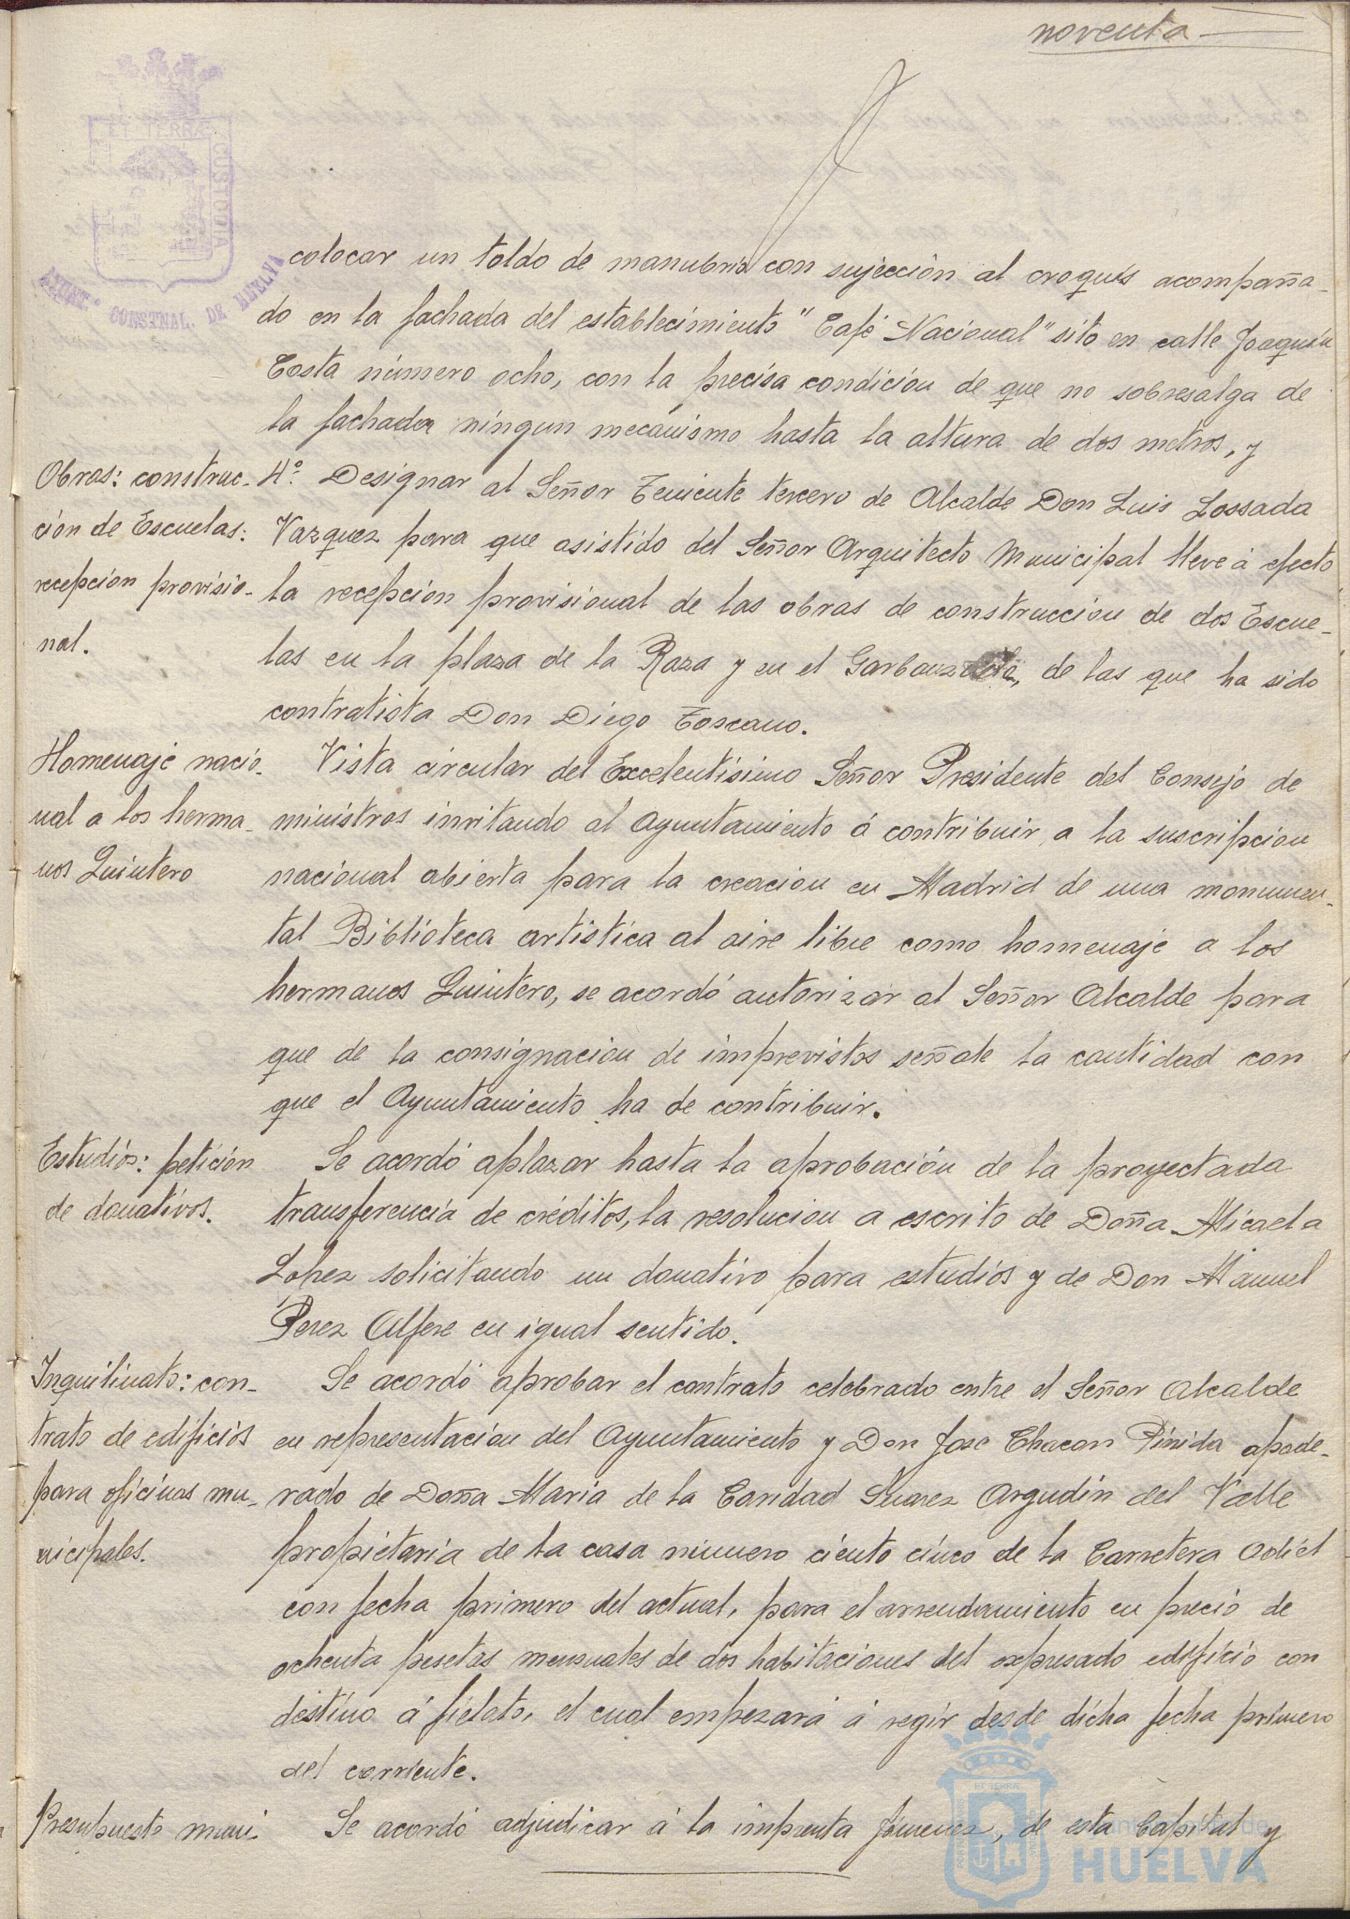 noventa
ET TERRA
CUSTODIA
AYUNT.º CONSTNAL. DE HUELVA
colocar un toldo de manubrio con sujección al croquis acompaña-
do en la fachada del establecimiento "Café Nacional" sito en calle Joaquín
Costa número ocho, con la precisa condición de que no sobresalga de
la fachada ningun mecanismo hasta la altura de dos metros, y
Obras: construc-
ción de Escuelas:
recepción provisio-
nal.
4º. Designar al Señor Teniente tercero de Alcalde Don Luis Lossada
Vazquez para que asistido del Señor Arquitecto Municipal lleve á efecto
la recepción provisional de las obras de construccion de dos Escue-
las en la plaza de la Raza y en el , de las que ha sido
contratista Don Diego Toscano.
Homenaje nacio-
nal a los herma-
nos Quintero
Vista circular del Excelentísimo Señor Presidente del Consejo de
ministros invitando al Ayuntamiento á contribuir a la suscripcion
nacional abierta para la creacion en Madrid de una monumen-
tal Biblioteca artística al aire libre como homenaje a los
hermanos Quintero, se acordó autorizar al Señor Alcalde para
que de la consignacion de imprevistos señale la cantidad con
que el Ayuntamiento ha de contribuir.
Estudios: petición
de donativos.
Se acordó aplazar hasta la aprobación de la proyectada
transferencia de créditos, la resolucion a escrito de Doña Micaela
López solicitando un donativo para estudios y de Don Manuel
Perez Alfere en igual sentido.
Inquilinato: con-
trato de edificios
para oficinas mu-
nicipales.
Se acordó aprobar el contrato celebrado entre el Señor Alcalde
en representación del Ayuntamiento y Don Jose Chacon Pinida apode-
rado de Doña Maria de la Caridad Suarez Argudín del Valle
propietaria de la casa número ciento cinco de la Carretera Odiel
con fecha primero del actual, para el arrendamiento en precio de
ochenta pesetas mensuales de dos habitaciones del expresado edificio con
destino á fielato, el cual empezará á regir desde dicha fecha primero
del corriente.
Presupuesto muni-
Se acordó adjudicar á la imprenta Jimenez, de esta Capital y
HUELVA